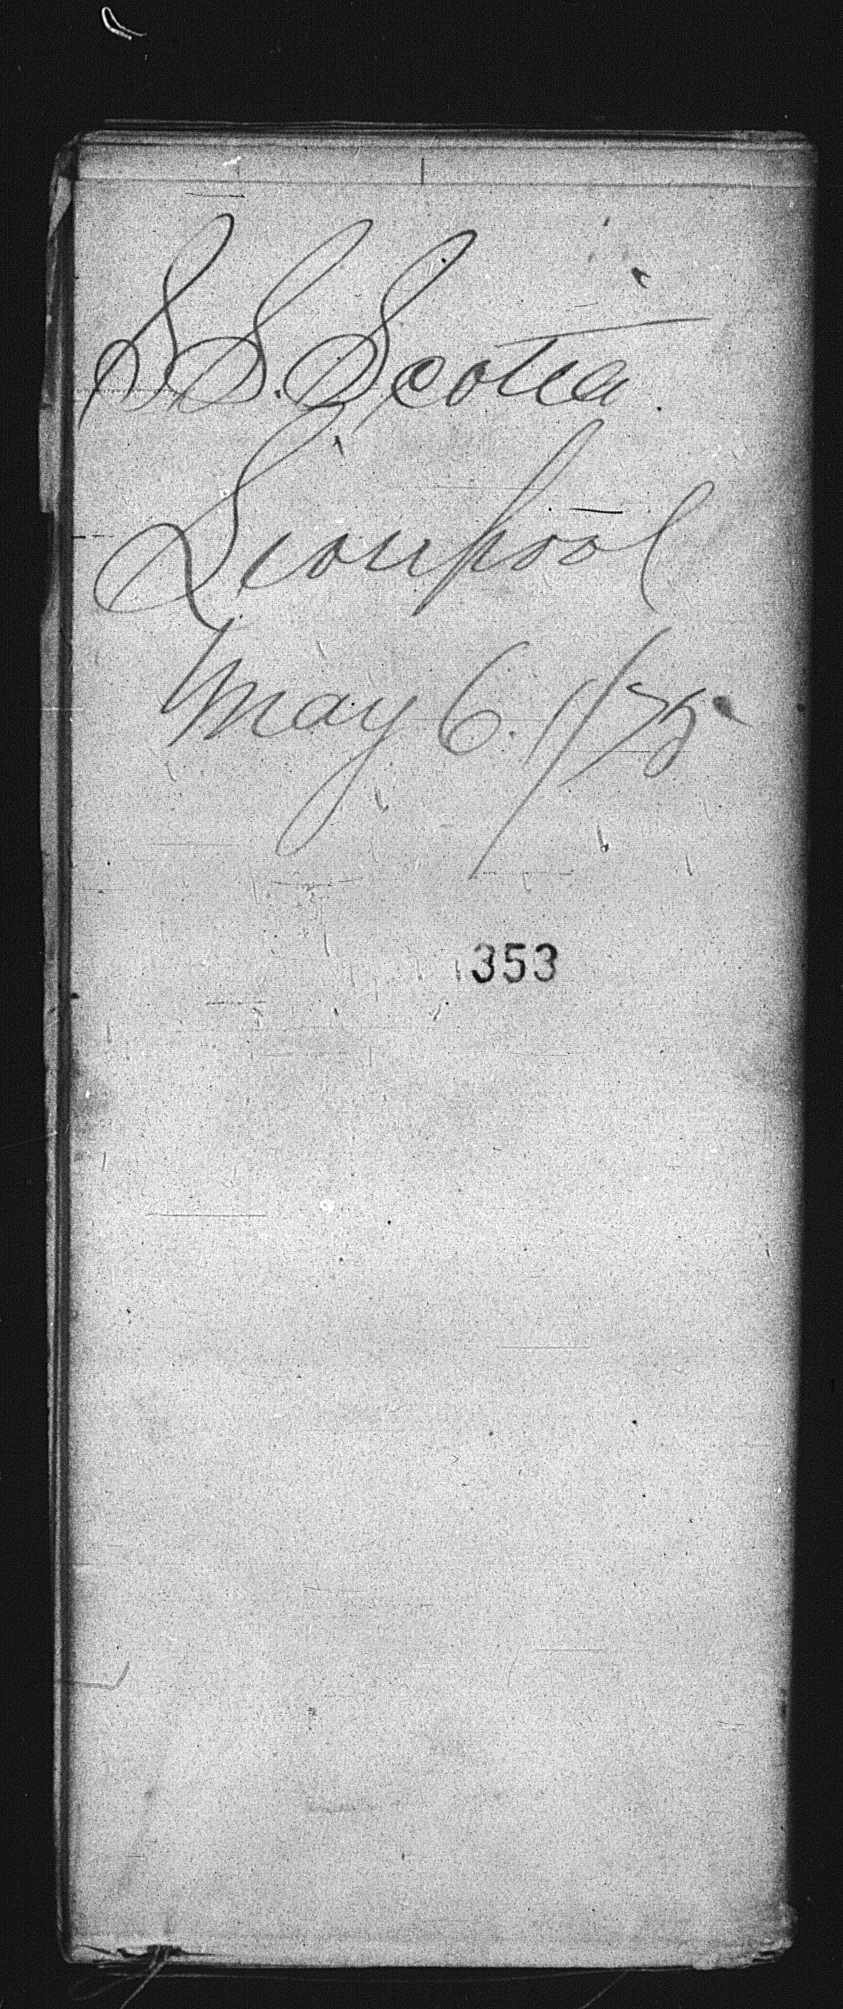 S.S. Scotia.
Liverpool
May 6. /75
353